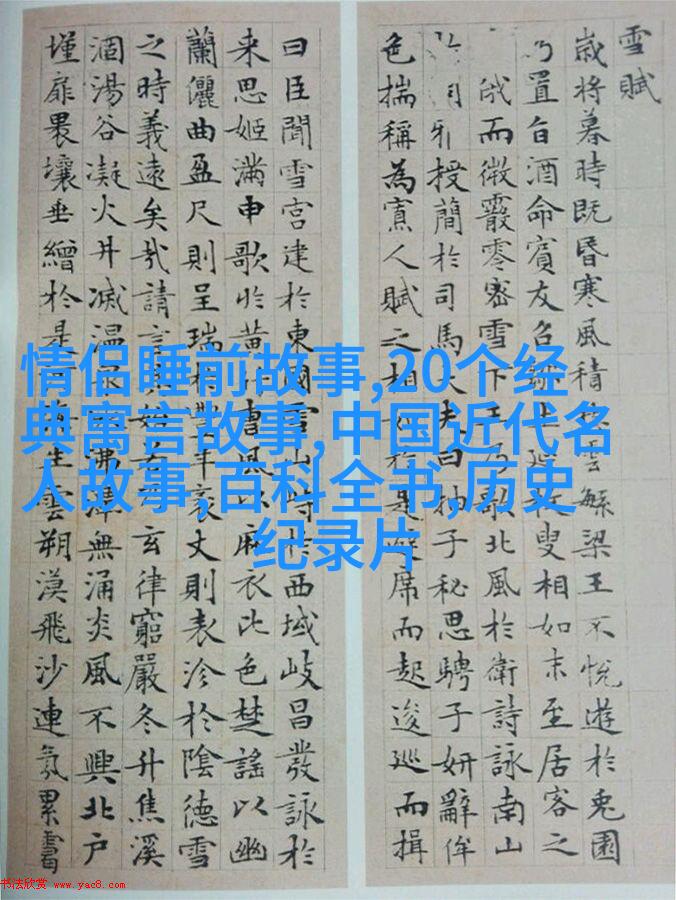 雪賦
歲將暮時既昏寒風積愁雲繁梁王不悅遊於兔園
乃置旨酒命賓友召鄒生延枚叟相如末至居客之
俄而微霰零密雪下王乃歌北風於衛詩詠南山
周雅授簡於司馬大夫曰抽子秘思騁子妍辭侔
色揣稱為寡人賦之相如於是避席而起逡巡而揖
曰臣聞雪宮建於東國雪山峙於西域岐昌發詠於
来思姬滿申歌於黃竹曹風以麻衣比色楚謠以幽
蘭儷曲盈尺則呈瑞於豐年袤丈則表沴於陰德雪
之時義遠矣哉請言其始若玄律窮嚴冬升焦溪
涸湯谷凝火井滅温泉沸潭無涌炎風不興北户
墐扉裸壤垂繒於是河海生雲朔漠飛沙連氛累靄
情侣睡前故事,20个经
典寓言故事,中国近代名
人故事,百科全书,历史
纪录片
书法欣赏 www.yac8.com